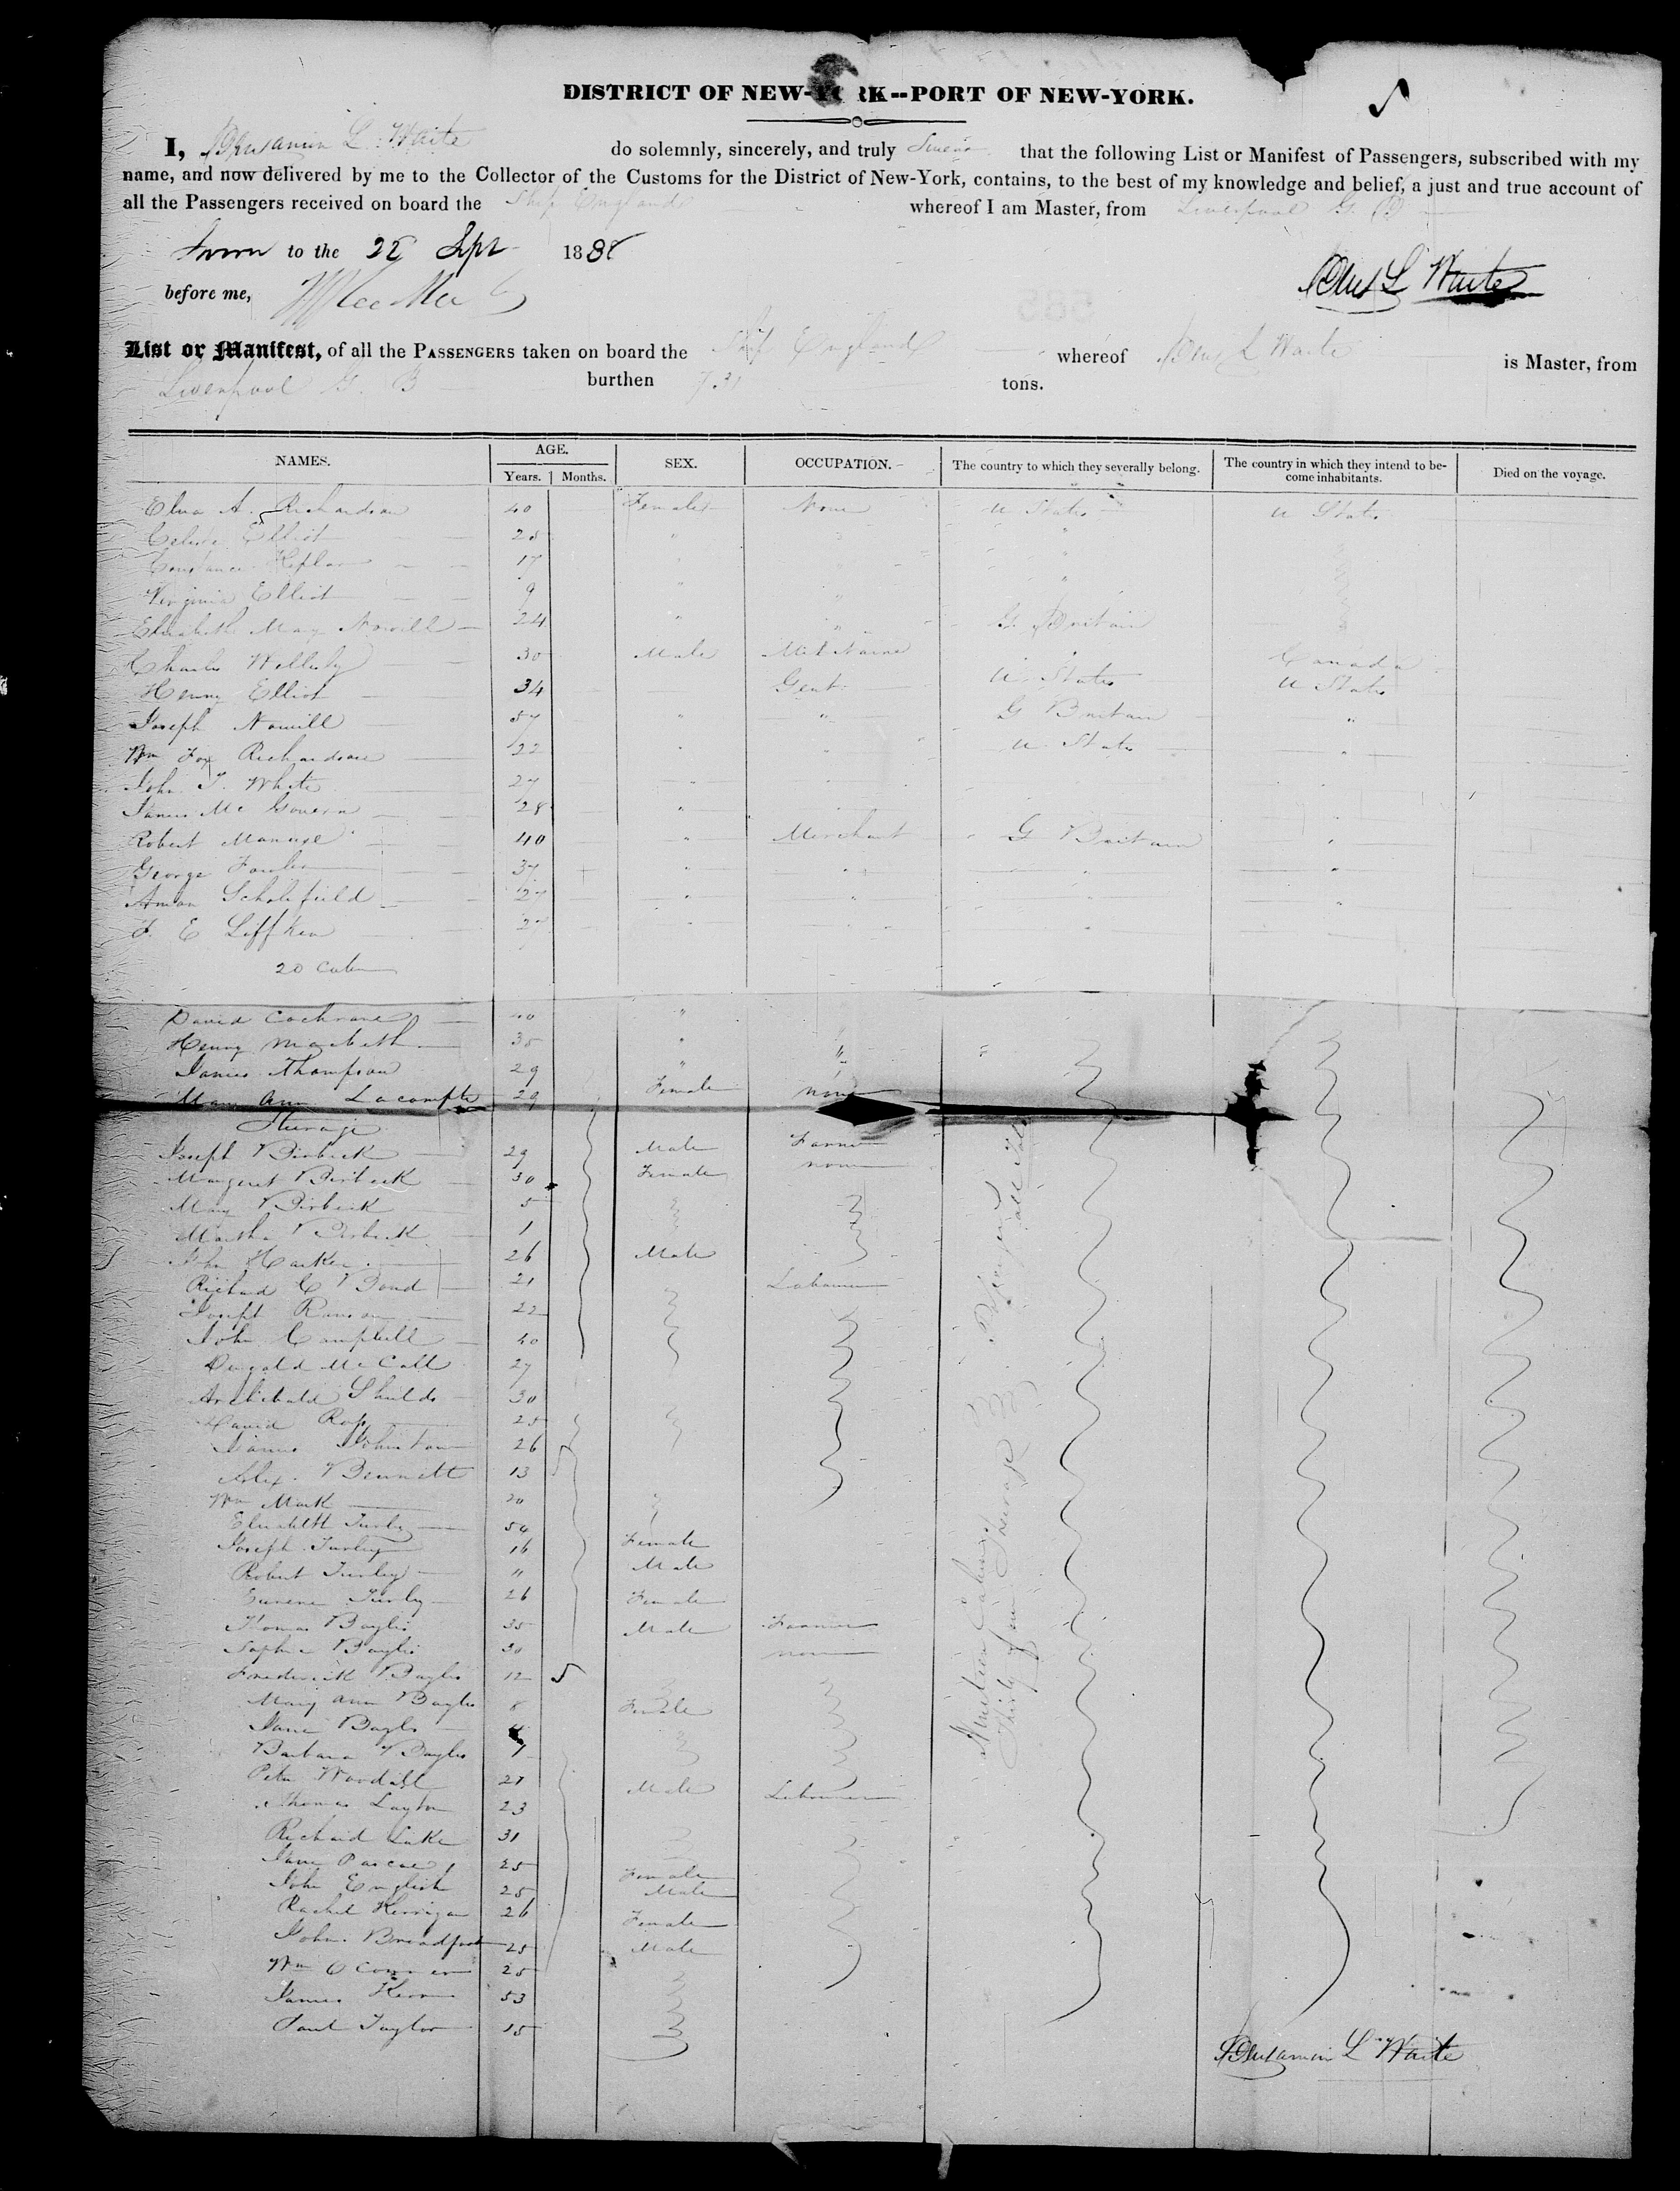 DISTRICT OF NEW-YORK--PORT OF NEW-YORK.
I, Benjamin L. Waite do solemnly, sincerely, and truly Swear that the following List or Manifest of Passengers, subscribed with my
name, and now delivered by me to the Collector of the Customs for the District of New-York, contains, to the best of my knowledge and belief, a just and true account of
all the Passengers received on board the Ship England whereof I am Master, from Liverpool G. B
Sworn to the 22 Sept 1838
before me,
Benj L Waite
List or Manifest, of all the PASSENGERS taken on board the Ship England whereof Benj L Waite is Master, from
Liverpool G. B burthen 731 tons.
NAMES. AGE. SEX. OCCUPATION. The country to which they severally belong. The country in which they intend to become inhabitants. Died on the voyage.
Years. Months.
A. Richardson 40 Female None U States U States
Elliot 28 "
Constance 17 "
Virginia Elliot 9 "
Elizabeth May Nowill 24 " " G. Britain
Charles 30 Male Canada
Henry Elliot 34 Gent U States U States
Joseph Nowill 57 " " G Britain "
Wm Fox Richardson 22 " " U States "
John T. White 27 "
James Mc Govern 28 "
Robert 40 " Merchant G Britain "
George Fowler 37 " " " "
Scholefield 27 " " " "
F. E 27 "
20 Cabin
David Cochrane 40 "
Henry Macbeth 35 " "
James Thompson 29 " "
Mary Ann Lacompte 29 Female none
Steerage
Joseph Birbeck 29 Male Farmer
Margaret Birbeck 30 Female none
Mary Birbeck 5
Martha Birbeck 1
John Harker 26 Male
Richard C Bond 21 Labourer
Joseph Ranson 22
John Campbell 40
Dugald Mc Call 27
Archibald Shields 30
David Ross 25
James Johnston 26
Alex. Bennett 13
Wm Mark 20
Elizabeth Turley 54 Female
Joseph Turley 16 Male
Robert Turley 11
Turley 26 Female
Thomas Baylis 35 Male Farmer
Sophia Baylis 30 none
Frederick Baylis 12
Mary Ann Baylis 8 Female
Jane Baylis
Barbara Baylis 1
Peter 21 Male Labourer
Thomas Layton 23
Richard Luke 31
Jane Pascoe 25 Female
John English 25 Male
Rachel Kerrigan 26 Female
John Broadfoot 25 Male
Wm O Connor 25
James 53
Paul Taylor 15
Nineteen Cabin
Thirty four Steerage
Benjamin L Waite